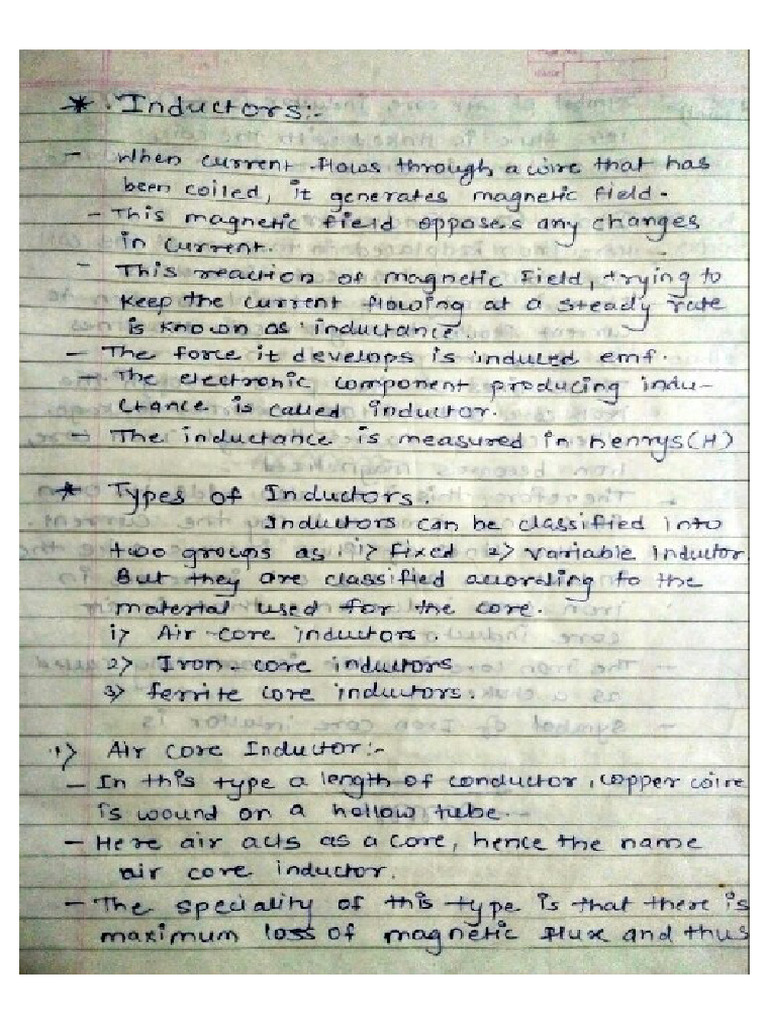 * Inductors:-
- When current flows through a wire that has
been coiled, it generates magnetic field.
- This magnetic field opposes any changes
in current.
- This reaction of magnetic field, trying to
keep the current flowing at a steady rate
is known as inductance.
- The force it develops is induced emf.
- The electronic component producing indu-
ctance is called inductor.
- The inductance is measured in henrys (H)
* Types of Inductors.
Inductors can be classified into
two groups as 1) fixed 2) variable inductor.
But they are classified according to the
material used for the core.
1) Air-core inductors
2) Iron-core inductors
3) ferrite core inductors.
1) Air core Inductor:-
- In this type a length of conductor, copper wire
is wound on a hollow tube.
- Here air acts as a core, hence the name
air core inductor.
- The speciality of this type is that there is
maximum loss of magnetic flux and thus